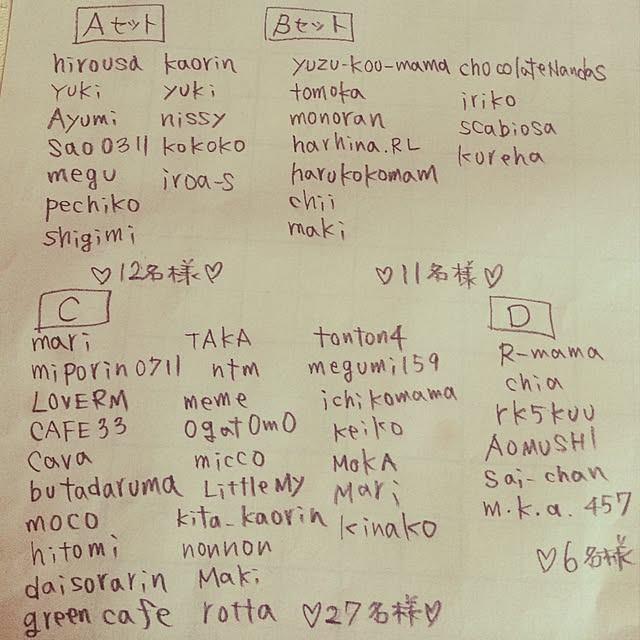 Aセット
hirousa kaorin
yuki yuki
Ayumi nissy
sao0311 kokoko
megu iroa-s
pechiko
shigimi
♡12名様♡
Bセット
yuzu-kou-mama chocolateNandas
tomoka iriko
monoran scabiosa
harhina.RL kureha
harukokomam
chii
maki
♡11名様♡
C
mari TAKA tonton4
miporin0711 ntm megumi159
LOVERM meme ichikomama
CAFE33 Ogat0m0 keiko
Cava micco MokA
butadaruma LittleMy Mari
moco kita_kaorin kinako
hitomi nonnon
daisorarin Maki
green cafe rotta ♡27名様♡
D
R-mama
chia
rk5kuu
AOMUSHI
Sai-chan
m.k.a.457
♡6名様